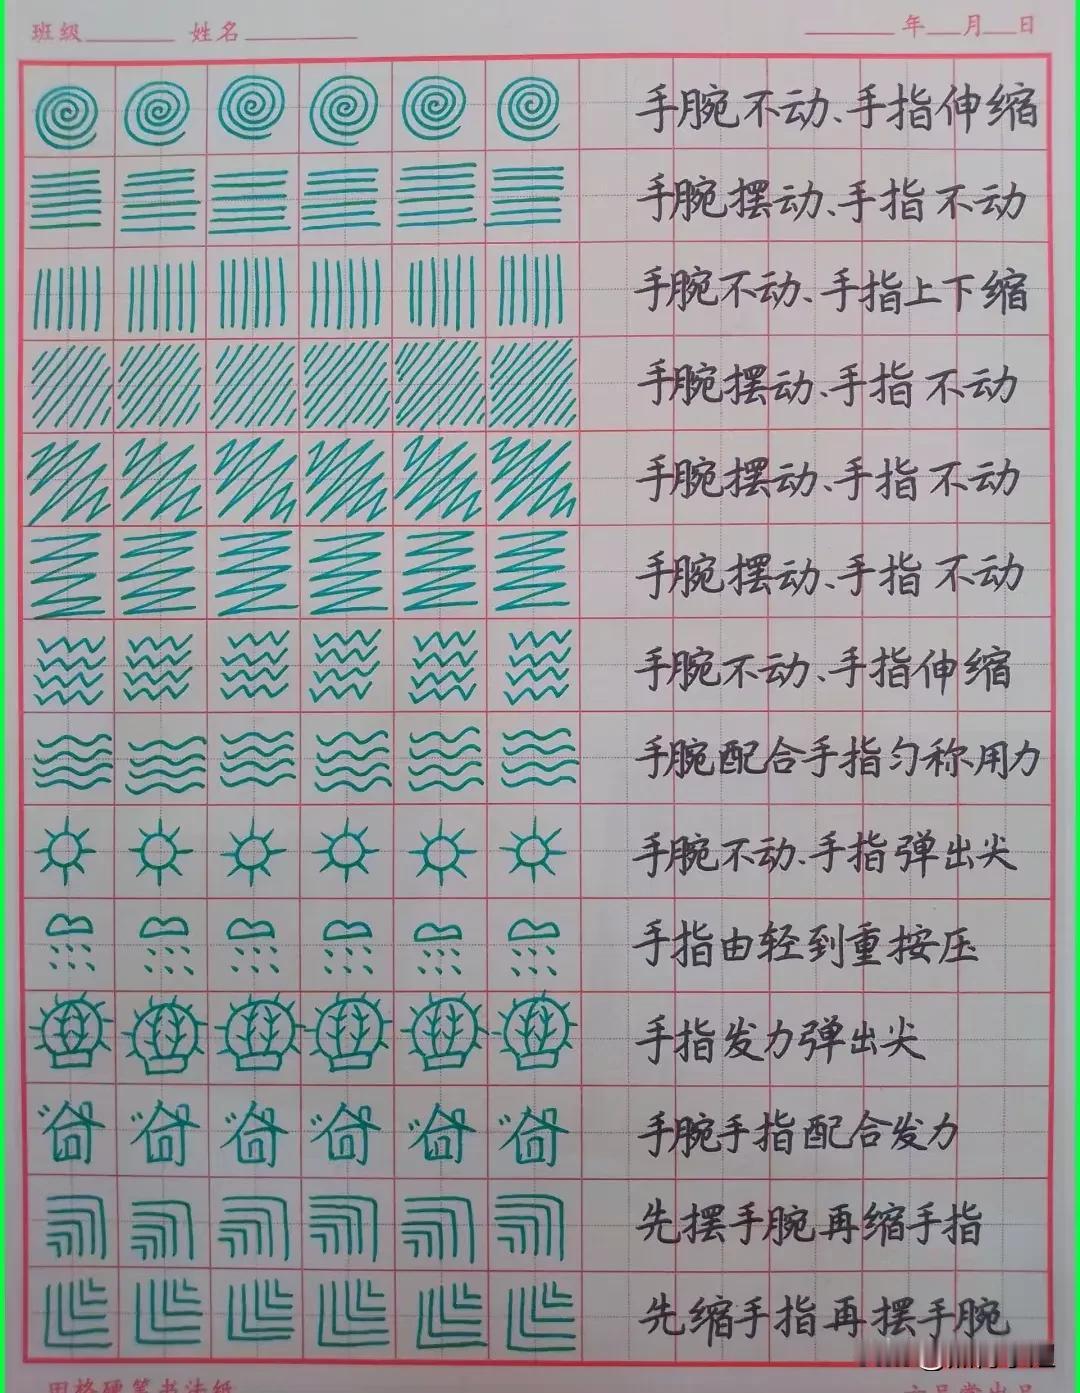 班级 姓名 年 月 日
手腕不动、手指伸缩
手腕摆动、手指不动
手腕不动、手指上下缩
手腕摆动、手指不动
手腕摆动、手指不动
手腕摆动、手指不动
手腕不动、手指伸缩
手腕配合手指匀称用力
手腕不动、手指弹出尖
手指由轻到重按压
手指发力弹出尖
手腕手指配合发力
先摆手腕再缩手指
先缩手指再摆手腕
田格硬笔书法纸